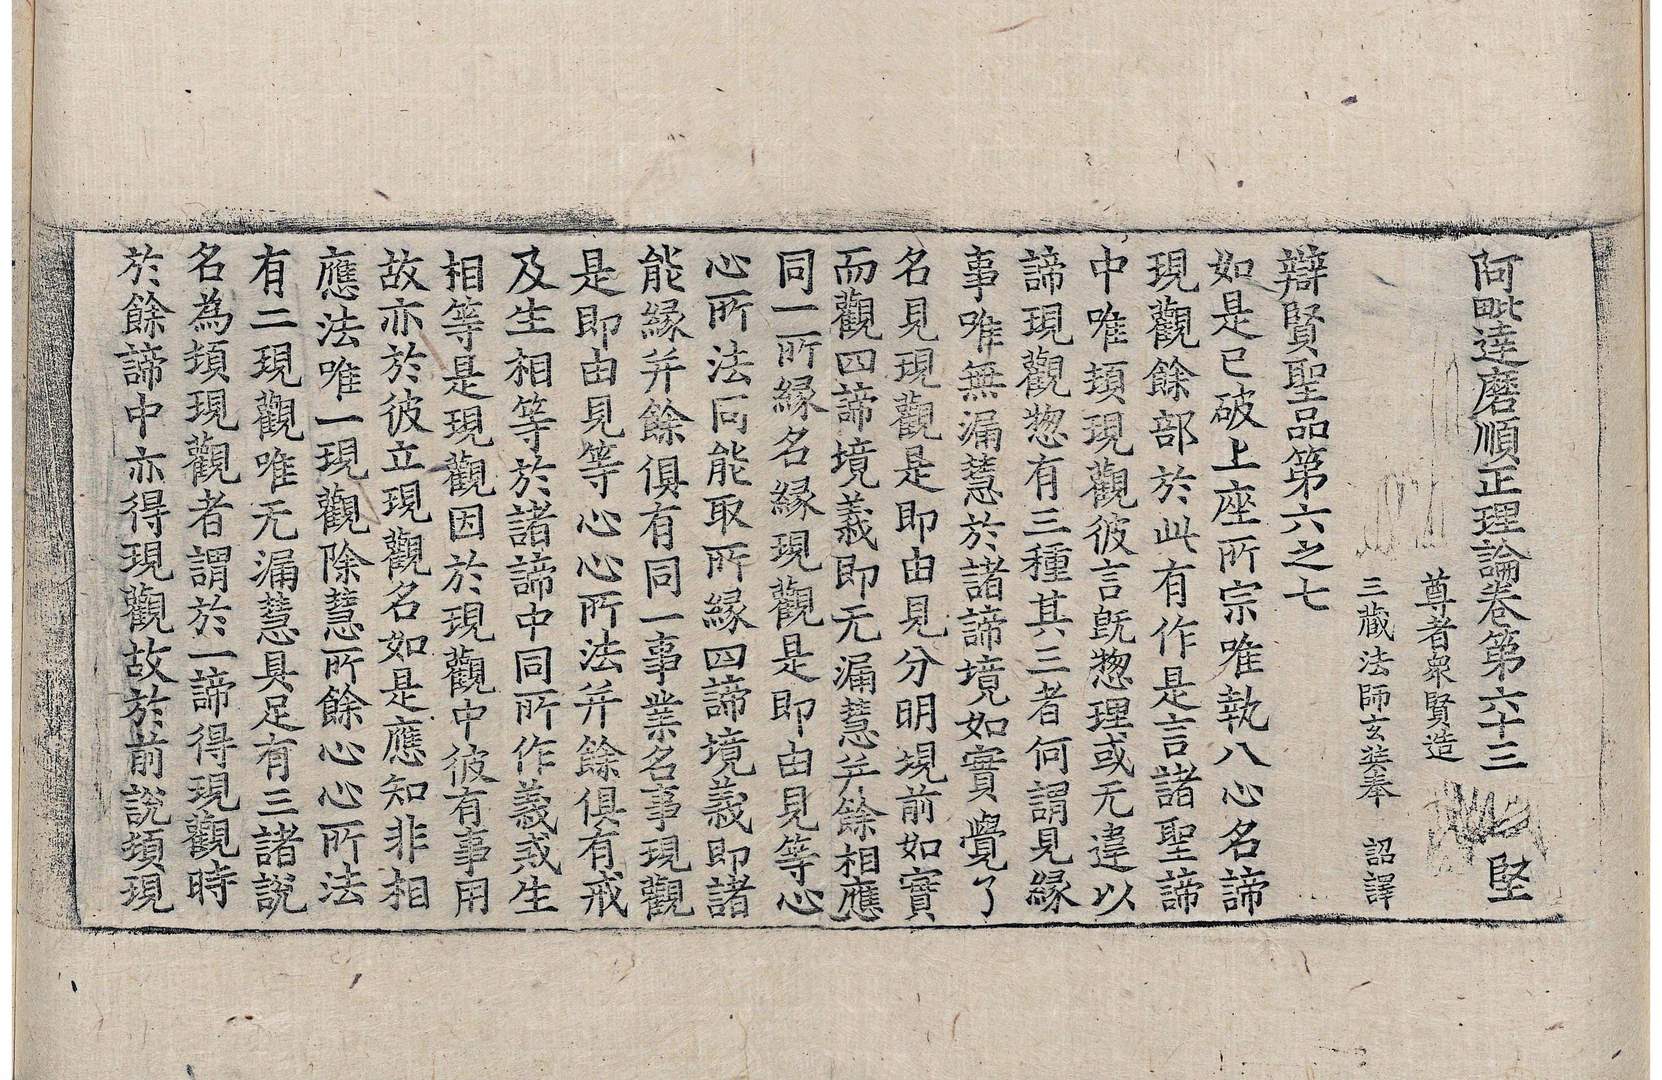 阿毗達磨順正理論卷第六十三 堅
尊者衆賢造
三藏法師玄奘奉 詔譯
辯賢聖品第六之七
如是已破上座所宗唯執八心名諦
現觀餘部於此有作是言諸聖諦
中唯頓現觀彼言旣惣理或无違以
諦現觀惣有三種其三者何謂見緣
事唯無漏慧於諸諦境如實覺了
名見現觀是即由見分明現前如實
而觀四諦境義即无漏慧并餘相應
同一所緣名緣現觀是即由見等心
心所法同能取所緣四諦境義即諸
能緣并餘俱有同一事業名事現觀
是即由見等心心所法并餘俱有戒
及生相等於諸諦中同所作義或生
相等是現觀因於現觀中彼有事用
故亦於彼立現觀名如是應知非相
應法唯一現觀除慧所餘心心所法
有二現觀唯无漏慧具足有三諸說
名為頓現觀者謂於一諦得現觀時
於餘諦中亦得現觀故於前說頓現